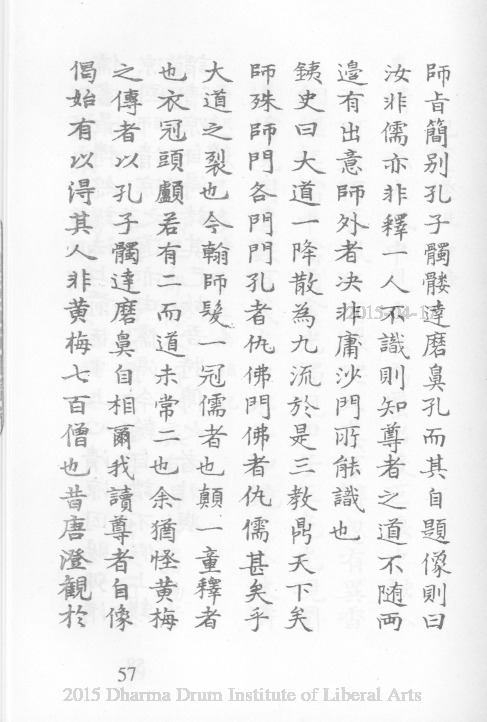 師旨簡别孔子髑髏達磨鼻孔而其自題像則曰
汝非儒亦非釋一人不識則知尊者之道不随兩
邊有出意師外者决非庸沙門所能識也
銕史曰大道一降散為九流於是三教鼎天下矣
師殊師門各門門孔者仇佛門佛者仇儒甚矣乎
大道之裂也今翰師髮一冠儒者也顛一童釋者
也衣冠頭顱若有二而道未常二也余猶怪黄梅
之傳者以孔子髑達磨鼻自相爾我讀尊者自像
偈始有以淂其人非黄梅七百僧也昔唐澄觀於
57
2015-04-17
2015 Dharma Drum Institute of Liberal Arts